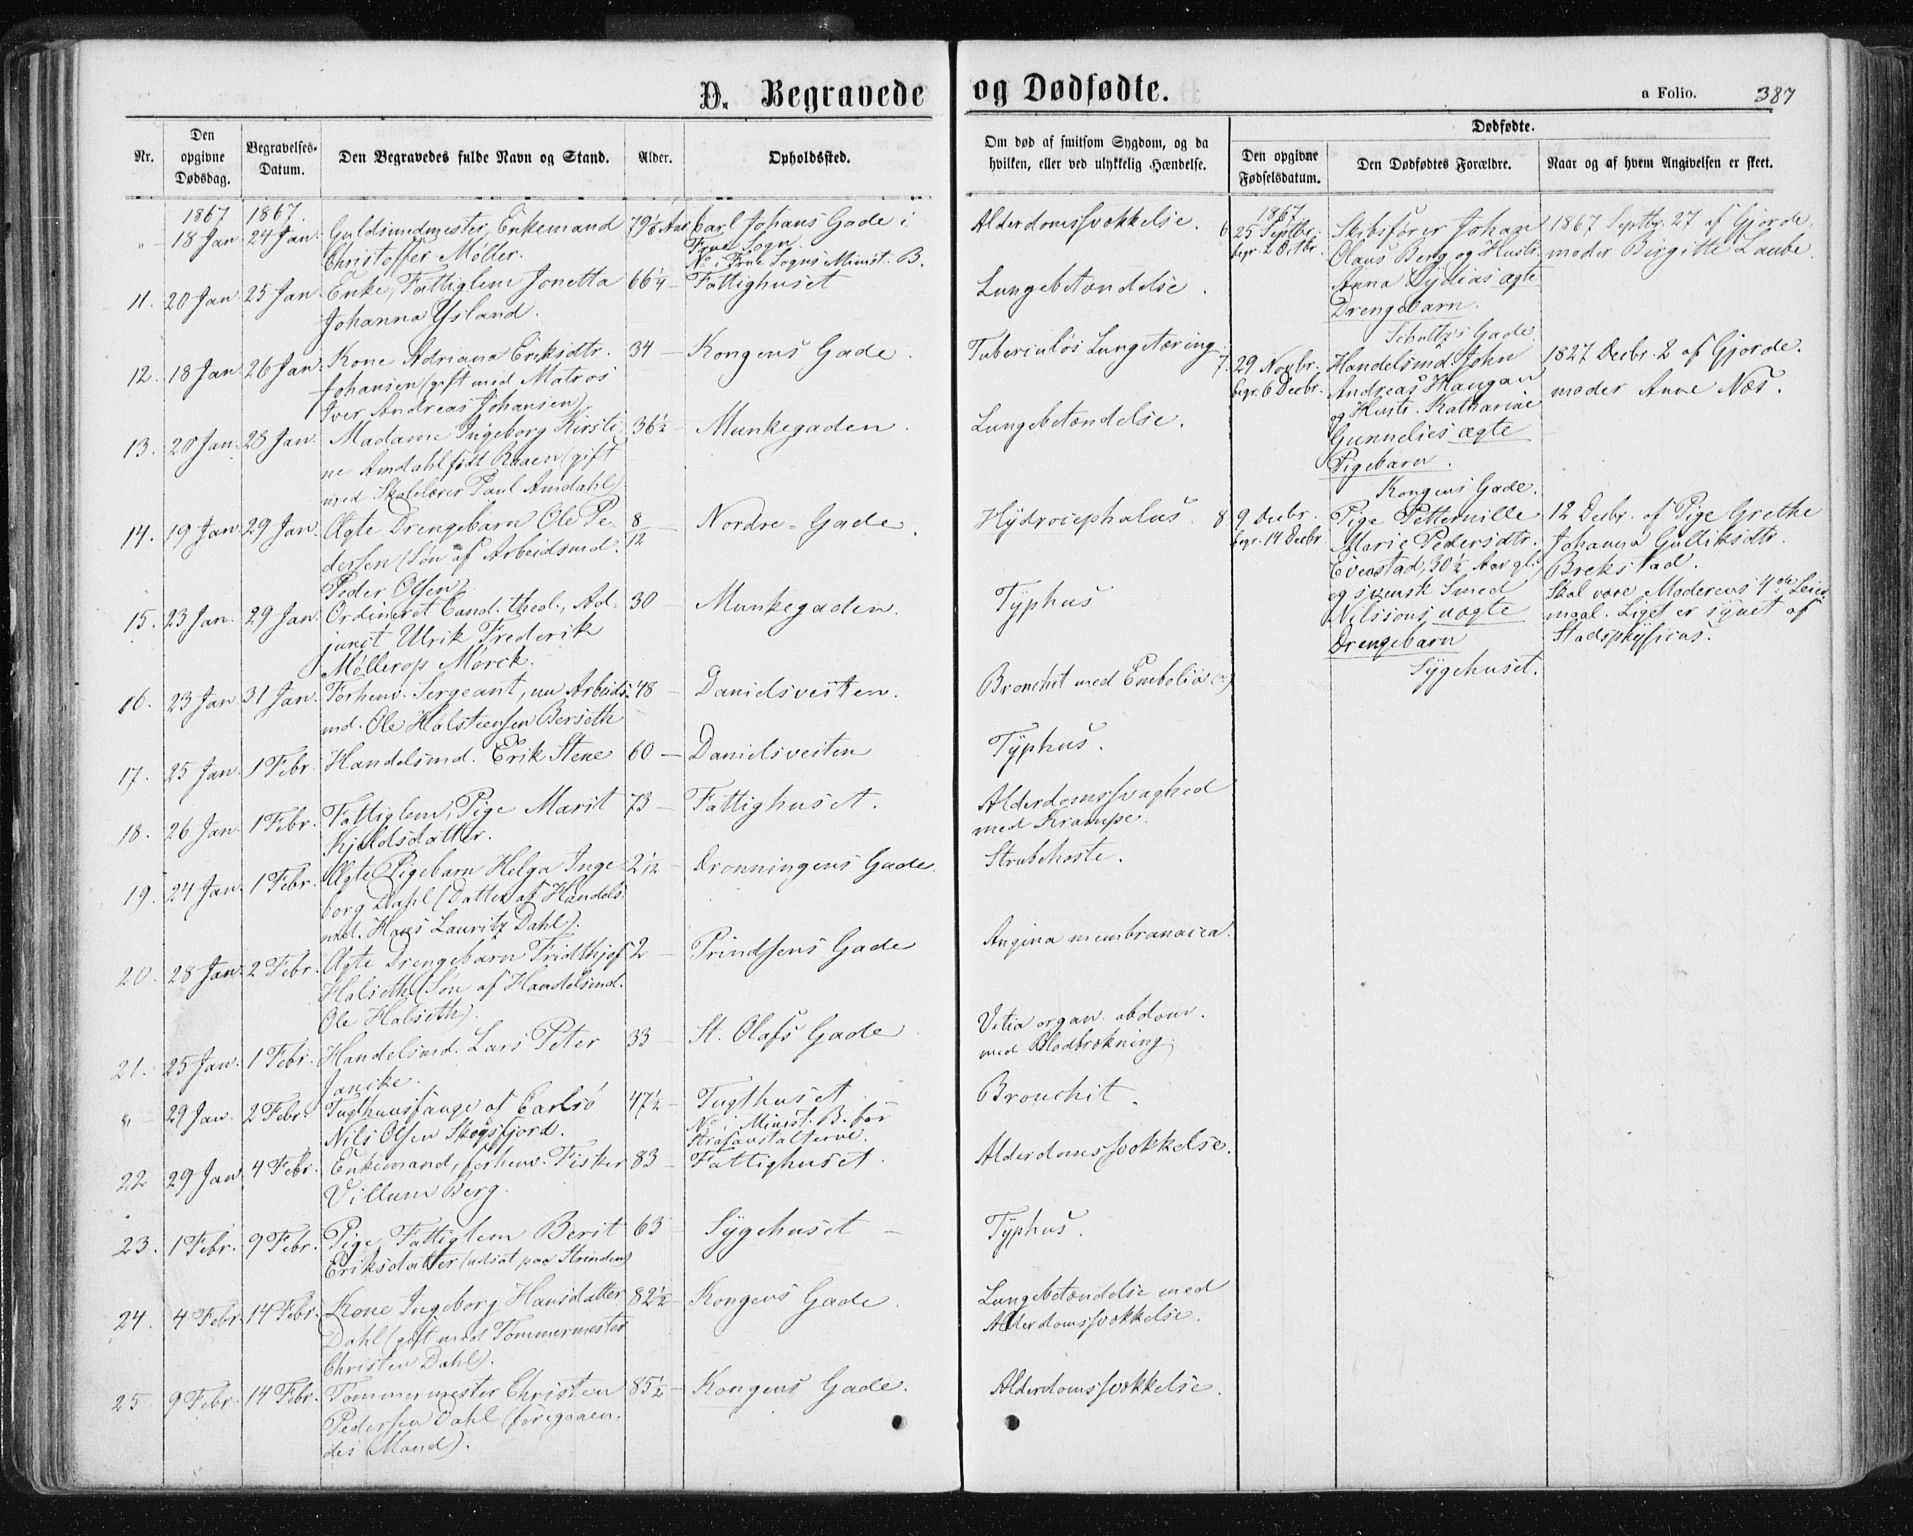 D. Begravede og Dødfødte.
a Folio. 387
Nr.
Den opgivne Dødsdag.
Begravelses-Datum.
Den Begravedes fulde Navn og Stand.
Alder.
Opholdssted.
Om død af smitsom Sygdom, og da hvilken, eller ved ulykkelig Hændelse.
Dødfødte.
Den opgivne Fødselsdatum.
Den Dødfødtes Forældre.
Naar og af hvem Angivelsen er skeet.
1867 1867.
" 18 Jan 24 Jan. Guldsmedmester, Enkemand 79 Aar Carl Johans Gade i Alderdomssvækkelse.
Christoffer Møller. Frue Sogn.
No i Frue Sogns Minist. B.
11. 20 Jan 25 Jan. Enke, Fattiglem Jonetta 66¼ — Fattighuset Lungebetændelse.
Johanna Ysland.
12. 18 Jan 26 Jan. Kone Adriana Eriksdtr. 34 — Kongens Gade. Tuberculøs Lungetæring.
Johansen (gift med Matros
Iver Andreas Johansen)
13. 20 Jan. 28 Jan. Madame Ingeborg Kirsti- 36½ — Munkegaden. Lungebetændelse.
ne Amdahl født Raaen (gift
med Skolelærer Paul Amdahl)
14. 19 Jan 29 Jan. Ægte Drengebarn Ole Pe- 8/12 — Nordre-Gade. Hydrocephalus.
dersen (Søn af Arbeidsmd.
Peder Olsen)
15. 23 Jan. 29 Jan. Ordineret Cand. theol., Ad- 30 — Munkegaden. Typhus
junct Ulrik Frederik
Møllerop Mørck.
16. 23 Jan 31 Jan. Forhenv. Sergeant, nu Arbeids- 48 — Danielsveiten. Bronchit med Embolia (?)
md. Ole Halsteensen Berseth
17. 25 Jan. 1 Febr. Handelsmd. Erik Stene 60 — Danielsveiten Typhus.
18. 26 Jan. 1 Febr. Fattiglem, Pige Marit 73 — Fattighuset. Alderdomssvaghed
Kjeldsdatter. med Krampe.
19. 24 Jan. 1 Febr. Ægte Pigebarn Helga Inge- 2 1/12 — Dronningens Gade. Strubehoste.
borg Dahl (Datter af Handels-
md. Hans Lauritz Dahl).
20. 28 Jan. 2 Febr. Ægte Drengebarn Fridthjof 2 — Prindsens Gade Angina membranacea.
Halseth (Søn af Handelsmd.
Ole Halseth).
21. 25 Jan. 1 Febr. Handelsmd. Lars Peter 33 — St. Olafs Gade Vitia organ. abdom.
Jancke. med Blodbrækning.
" — 29 Jan. 2 Febr. Tugthuusfange af Carlsø 47½ — Tugthuset Bronchit.
Nils Olsen Skogsfjord. No i Minist. B. for
Strafanstalterne.
22 29 Jan. 4 Febr. Enkemand, forhenv. Fisker 83 — Fattighuset. Alderdomssvækkelse.
Villum Berg.
23. 1 Febr. 9 Febr. Pige, Fattiglem Berit 63 Sygehuset — Typhus.
Eriksdatter (udsat paa Strinden)
24. 4 Febr. 14 Febr. Kone Ingeborg Hansdatter 82½ — Kongens Gade. Lungebetændelse med
Dahl (gift med Tømmermester Alderdomssvækkelse.
Christen Dahl).
25 9 Febr. 14 Febr. Tømmermester Christen 85½ — Kongens Gade. Alderdomssvækkelse.
Pedersen Dahl (foregaaen-
des Mand).
1867
6 25 Septbr. Skibsfører Johan 1867 Septbr. 27 af Gjorde-
begr. 2 Octbr. Olaus Berg og Hustr. moder Birgitte Laube.
Anna Lydias ægte
Drengebarn.
Schultzs Gade.
7. 29 Novbr. Handelsmd. John 1827 Decbr. 2 af Gjorde-
begr. 6 Decbr. Andreas Haugan moder Anne Næs.
og Hustr. Katharine
Gunnelies ægte
Pigebarn.
Kongens Gade.
8 9 Decbr. Pige Petternille 12 Decbr. af Pige Grethe
begr. 14 Decbr. Marie Pedersdtr. Johanna Gulliksdtr.
Evenstad, 30½ Aar gl. Brekstad.
og svensk Smed Skal være Moderens 4de Leier-
Nilssons uægte maal. Liget er synet af
Drengebarn Stadsphysicus.
Sygehuset.